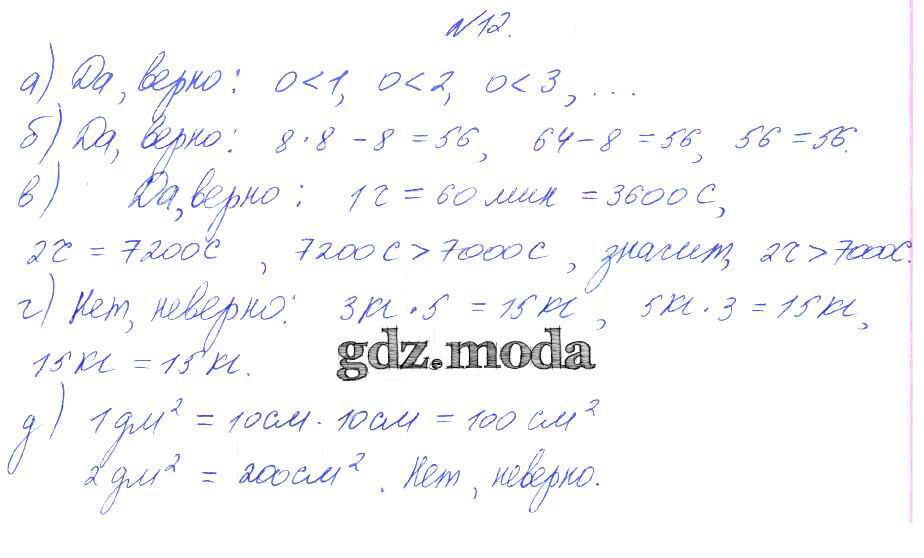 №12.
а) Да, верно: 0<1, 0<2, 0<3, ...
б) Да, верно: 8·8-8=56, 64-8=56, 56=56.
в) Да, верно: 1ч=60мин=3600с,
2ч=7200с, 7200с>7000с, значит, 2ч>7000с.
г) Нет, неверно: 3кг·5=15кг, 5кг·3=15кг,
15кг=15кг.
gdz.moda
д) 1дм²=10см·10см=100см²
2дм²=200см². Нет, неверно.